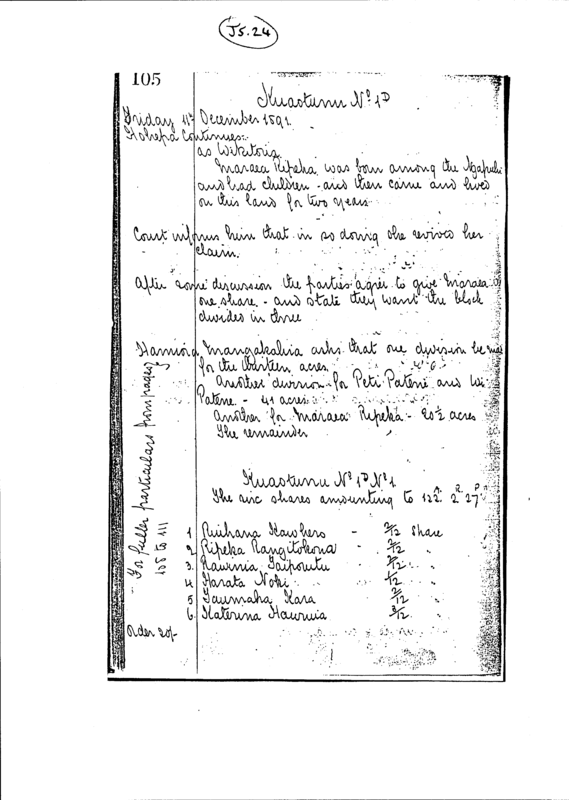 J5.24
105
Kuaotunu No. 1D
Friday 11th December 1891.
Hohepa Continues:
as Wikitoria
Maraea Ripeka was born among the Ngapuhi
and had children - and then came and lived
on this land for two years
Court informs him that in so doing she revived her
claim.
After some discussion the parties agree to give Maraea
one share - and state they want the block
divided in three
Hamiora Mangakahia asks that one division be made
for the thirteen acres
Another division for Peti Patene and Wi
Patene - 41 acres
Another for Maraea Ripeka - 20½ acres
The remainder
For fuller particulars from pages
105 to 111
Kuaotunu No. 1D No. 1
The six shares amounting to 122A. 2R 27P
1 Ruihana Kawhero - 2/12 Share
2 Ripeka Rangitokona - 2/12 "
3. Rawinia Taipoutu - 2/12 "
4 Harata Noki - 1/12 "
5 Taumaha Kara 2/12 "
6. Katerina Hauruia 3/12 "
Order 20/-